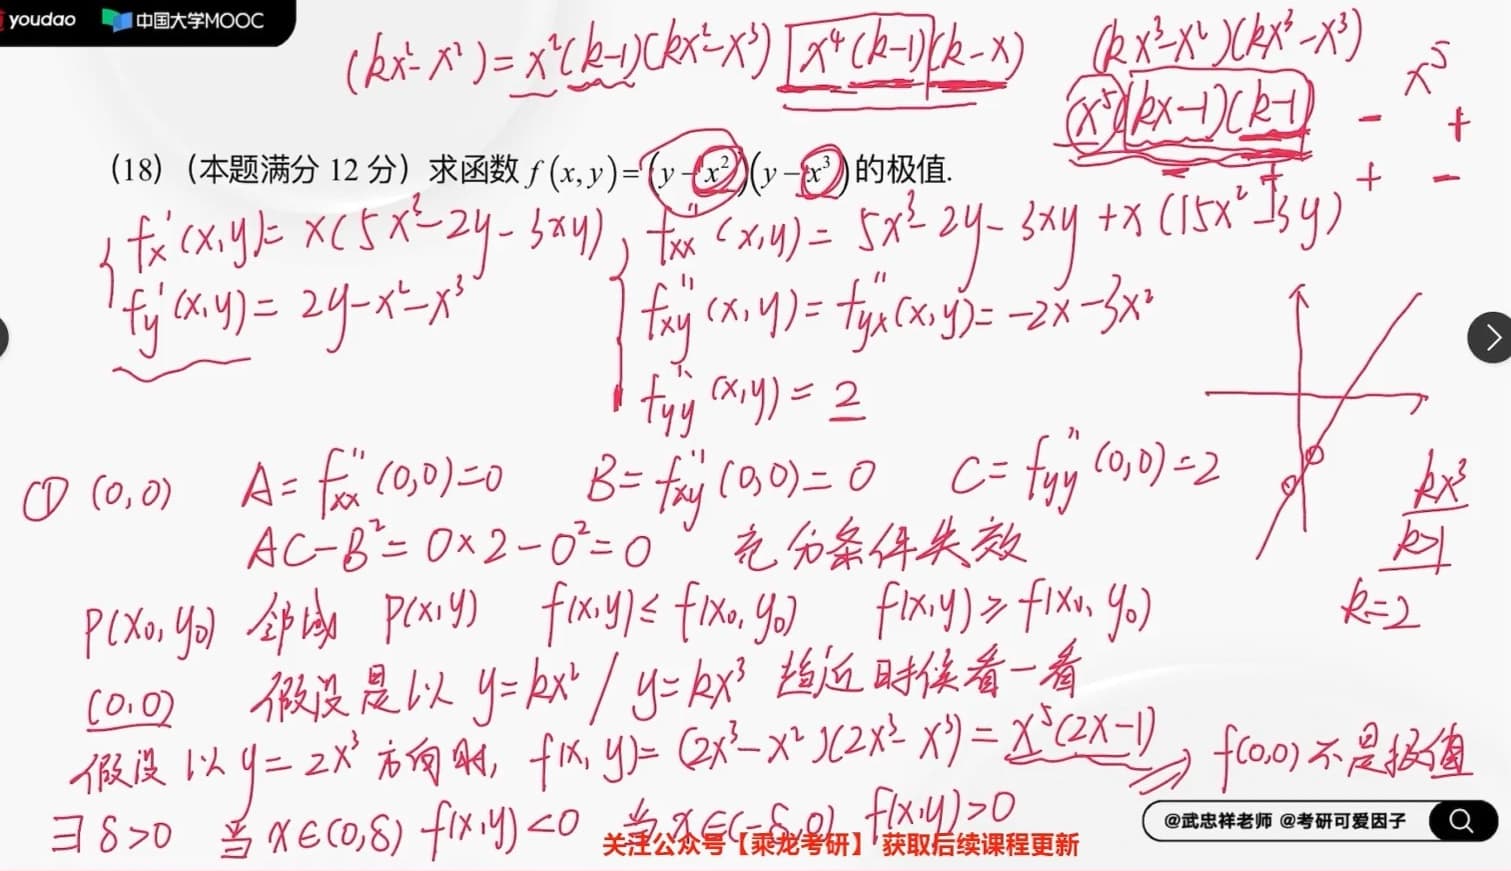 youdao 中国大学MOOC
(kx²-x²)=x²(k-1)(kx²-x³) x⁴(k-1)(k-x) (kx³-x²)(kx³-x³)
x⁵(kx-1)(k-1) - + x⁵
+ -
(18)（本题满分 12 分）求函数 f(x,y)=(y-x²)(y-x³)的极值.
fx'(x,y)= x(5x³-2y-3xy), fxx''(x,y)= 5x³-2y-3xy+x(15x²-3y)
fy'(x,y)= 2y-x²-x³ fxy''(x,y)= fyx''(x,y)= -2x-3x²
fyy''(x,y)= 2
① (0,0) A= fxx''(0,0)=0 B= fxy''(0,0)= 0 C= fyy''(0,0)=2
kx³
AC-B²= 0×2-0²=0 充分条件失效 k>1
P(x₀,y₀) 邻域 P(x,y) f(x,y)≤ f(x₀,y₀) f(x,y)≥ f(x₀,y₀) k=2
(0,0) 假设是以 y=kx² / y=kx³ 趋近时候看一看
假设以 y= 2x³ 方向时, f(x,y)= (2x³-x²)(2x³-x³)= x⁵(2x-1) ⇒ f(0,0)不是极值
∃ δ>0 当 x∈(0,δ) f(x,y)<0 当 x∈(-δ,0) f(x,y)>0
@武忠祥老师 @考研可爱因子
关注公众号【乘龙考研】 获取后续课程更新